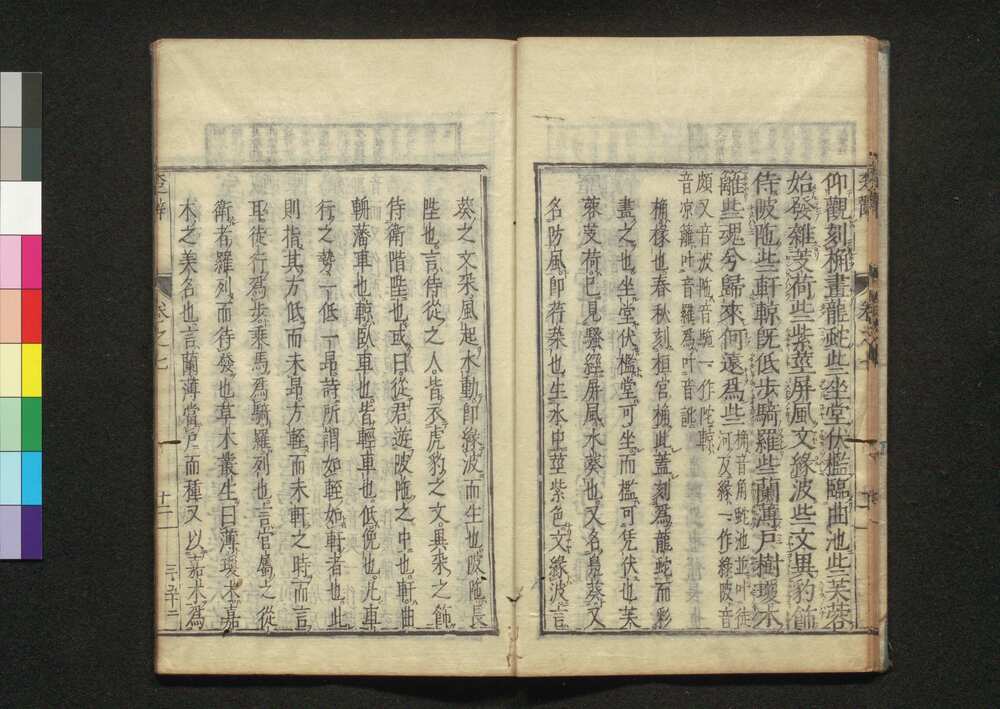 仰觀刻桷畫龍虵些坐堂伏檻臨曲池些芙蓉
始發雜芰荷些紫莖屏風文緣波些文異豹飾
侍陂陁些軒輬既低步騎羅些蘭薄戶樹瓊木
籬些魂兮歸來何遠爲些桷音角虵池並叶徒
河反緣一作綠陂音
頗又音波陁音駞一作陀輬
音凉籬叶音羅爲叶音訛
桷椽也春秋刻桓宮桷此蓋刻爲龍蛇而彩
畫之也坐堂伏檻堂可坐而檻可凭伏也芙
蓉芰荷已見騷經屏風水葵也又名鳧葵又
名防風即荇菜也生水中莖紫色文緣波言
葵之文采風起水動即緣波而生也陂陁長
陛也言侍從之人皆衣虎豹之文異采之飾
侍衛階陛也或曰從君遊陂陁之中也軒曲
輈藩車也輬臥車也皆輕車也低俛也凡車
行之勢一低一昂詩所謂如輊如軒者也此
則指其方低而未昂方輊而未軒之時而言
耳徒行爲步乘馬爲騎羅列也言官屬之從
衛者羅列而待發也草木叢生曰薄瓊木嘉
木之美名也言蘭薄當戶而種又以嘉木爲
楚辭
卷之七
十二